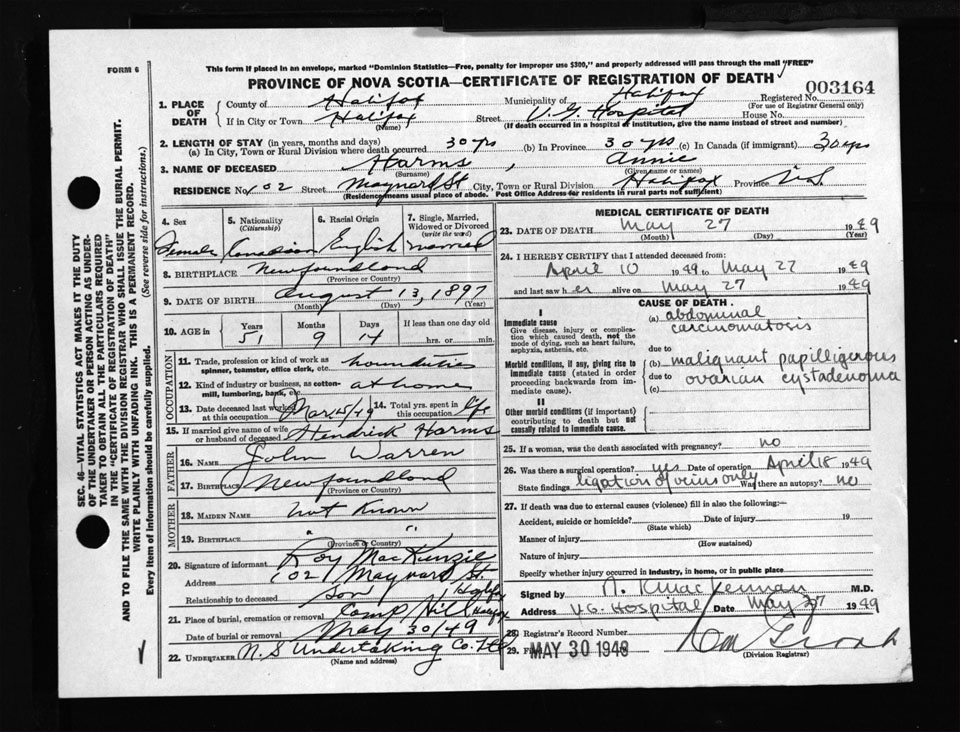 This form if placed in an envelope, marked "Dominion Statistics—Free, penalty for improper use $300," and properly addressed will pass through the mail "FREE"
FORM 6
PROVINCE OF NOVA SCOTIA—CERTIFICATE OF REGISTRATION OF DEATH
003164
1. PLACE OF DEATH
County of Halifax Municipality of Halifax Registered No.
(For use of Registrar General only)
If in City or Town Halifax Street V.G. Hospital House No.
(Name) (If death occurred in a hospital or institution, give the name instead of street and number)
2. LENGTH OF STAY (in years, months and days)
(a) In City, Town or Rural Division where death occurred 30 yrs (b) In Province 30 yrs (c) In Canada (if immigrant) 30 yrs
3. NAME OF DECEASED Harms, Annie
(Given name or names)
RESIDENCE No. 102 Street Maynard St City, Town or Rural Division Halifax Province N.S.
(Residence means usual place of abode. Post Office Address for residents in rural parts not sufficient)
4. Sex Female
5. Nationality (Citizenship) Canadian
6. Racial Origin English
7. Single, Married, Widowed or Divorced (write the word) married
8. BIRTHPLACE Newfoundland
(Province or Country)
9. DATE OF BIRTH August 13, 1897
(Month) (Day) (Year)
10. AGE in Years Months Days If less than one day
51 9 14 hrs. or min.
OCCUPATION
11. Trade, profession or kind of work as spinner, teamster, office clerk, etc.
12. Kind of industry or business, as cotton-mill, lumbering, bank, etc. at home
13. Date deceased last worked at this occupation Mar 15/49
14. Total yrs. spent in this occupation life
15. If married give name of wife or husband of deceased Hendrick Harms
FATHER
16. NAME John Warren
17. BIRTHPLACE Newfoundland
(Province or Country)
MOTHER
18. MAIDEN NAME not known
19. BIRTHPLACE " "
(Province or Country)
20. Signature of informant Roy MacKenzie
Address 102 Maynard St. Halifax
Relationship to deceased son
21. Place of burial, cremation or removal Camp Hill Halifax
Date of burial or removal May 30/49
22. UNDERTAKER N.S Undertaking Co. Ltd
(Name and address)
MEDICAL CERTIFICATE OF DEATH
23. DATE OF DEATH May 27 1949
(Month) (Day) (Year)
24. I HEREBY CERTIFY that I attended deceased from:
April 10 1949 to May 27 1949
and last saw her alive on May 27 1949
CAUSE OF DEATH
I
Immediate cause
Give disease, injury or complication which caused death, not the mode of dying, such as heart failure, asphyxia, asthenia, etc.
(a) abdominal carcinomatosis
due to
Morbid conditions, if any, giving rise to immediate cause (stated in order proceeding backwards from immediate cause).
(b) malignant papilligerous
due to ovarian cystadenoma
(c)
II
Other morbid conditions (if important) contributing to death but not causally related to immediate cause.
25. If a woman, was the death associated with pregnancy? no
26. Was there a surgical operation? yes Date of operation April 18 1949
State findings ligation of veins only Was there an autopsy? no
27. If death was due to external causes (violence) fill in also the following:
Accident, suicide or homicide? Date of injury 19
(State which)
Manner of injury
(How sustained)
Nature of injury
Specify whether injury occurred in industry, in home, or in public place
Signed by M.D.
Address V.G. Hospital Date May 27 1949
28. Registrar's Record Number
29. MAY 30 1949
(Division Registrar)
SEC. 46—VITAL STATISTICS ACT MAKES IT THE DUTY
OF THE UNDERTAKER OR PERSON ACTING AS UNDER-
TAKER TO OBTAIN ALL THE PARTICULARS REQUIRED
IN THE "CERTIFICATE OF REGISTRATION OF DEATH"
AND TO FILE THE SAME WITH THE DIVISION REGISTRAR WHO SHALL ISSUE THE BURIAL PERMIT.
WRITE PLAINLY WITH UNFADING INK. THIS IS A PERMANENT RECORD.
Every item of Information should be carefully supplied. (See reverse side for instructions.)